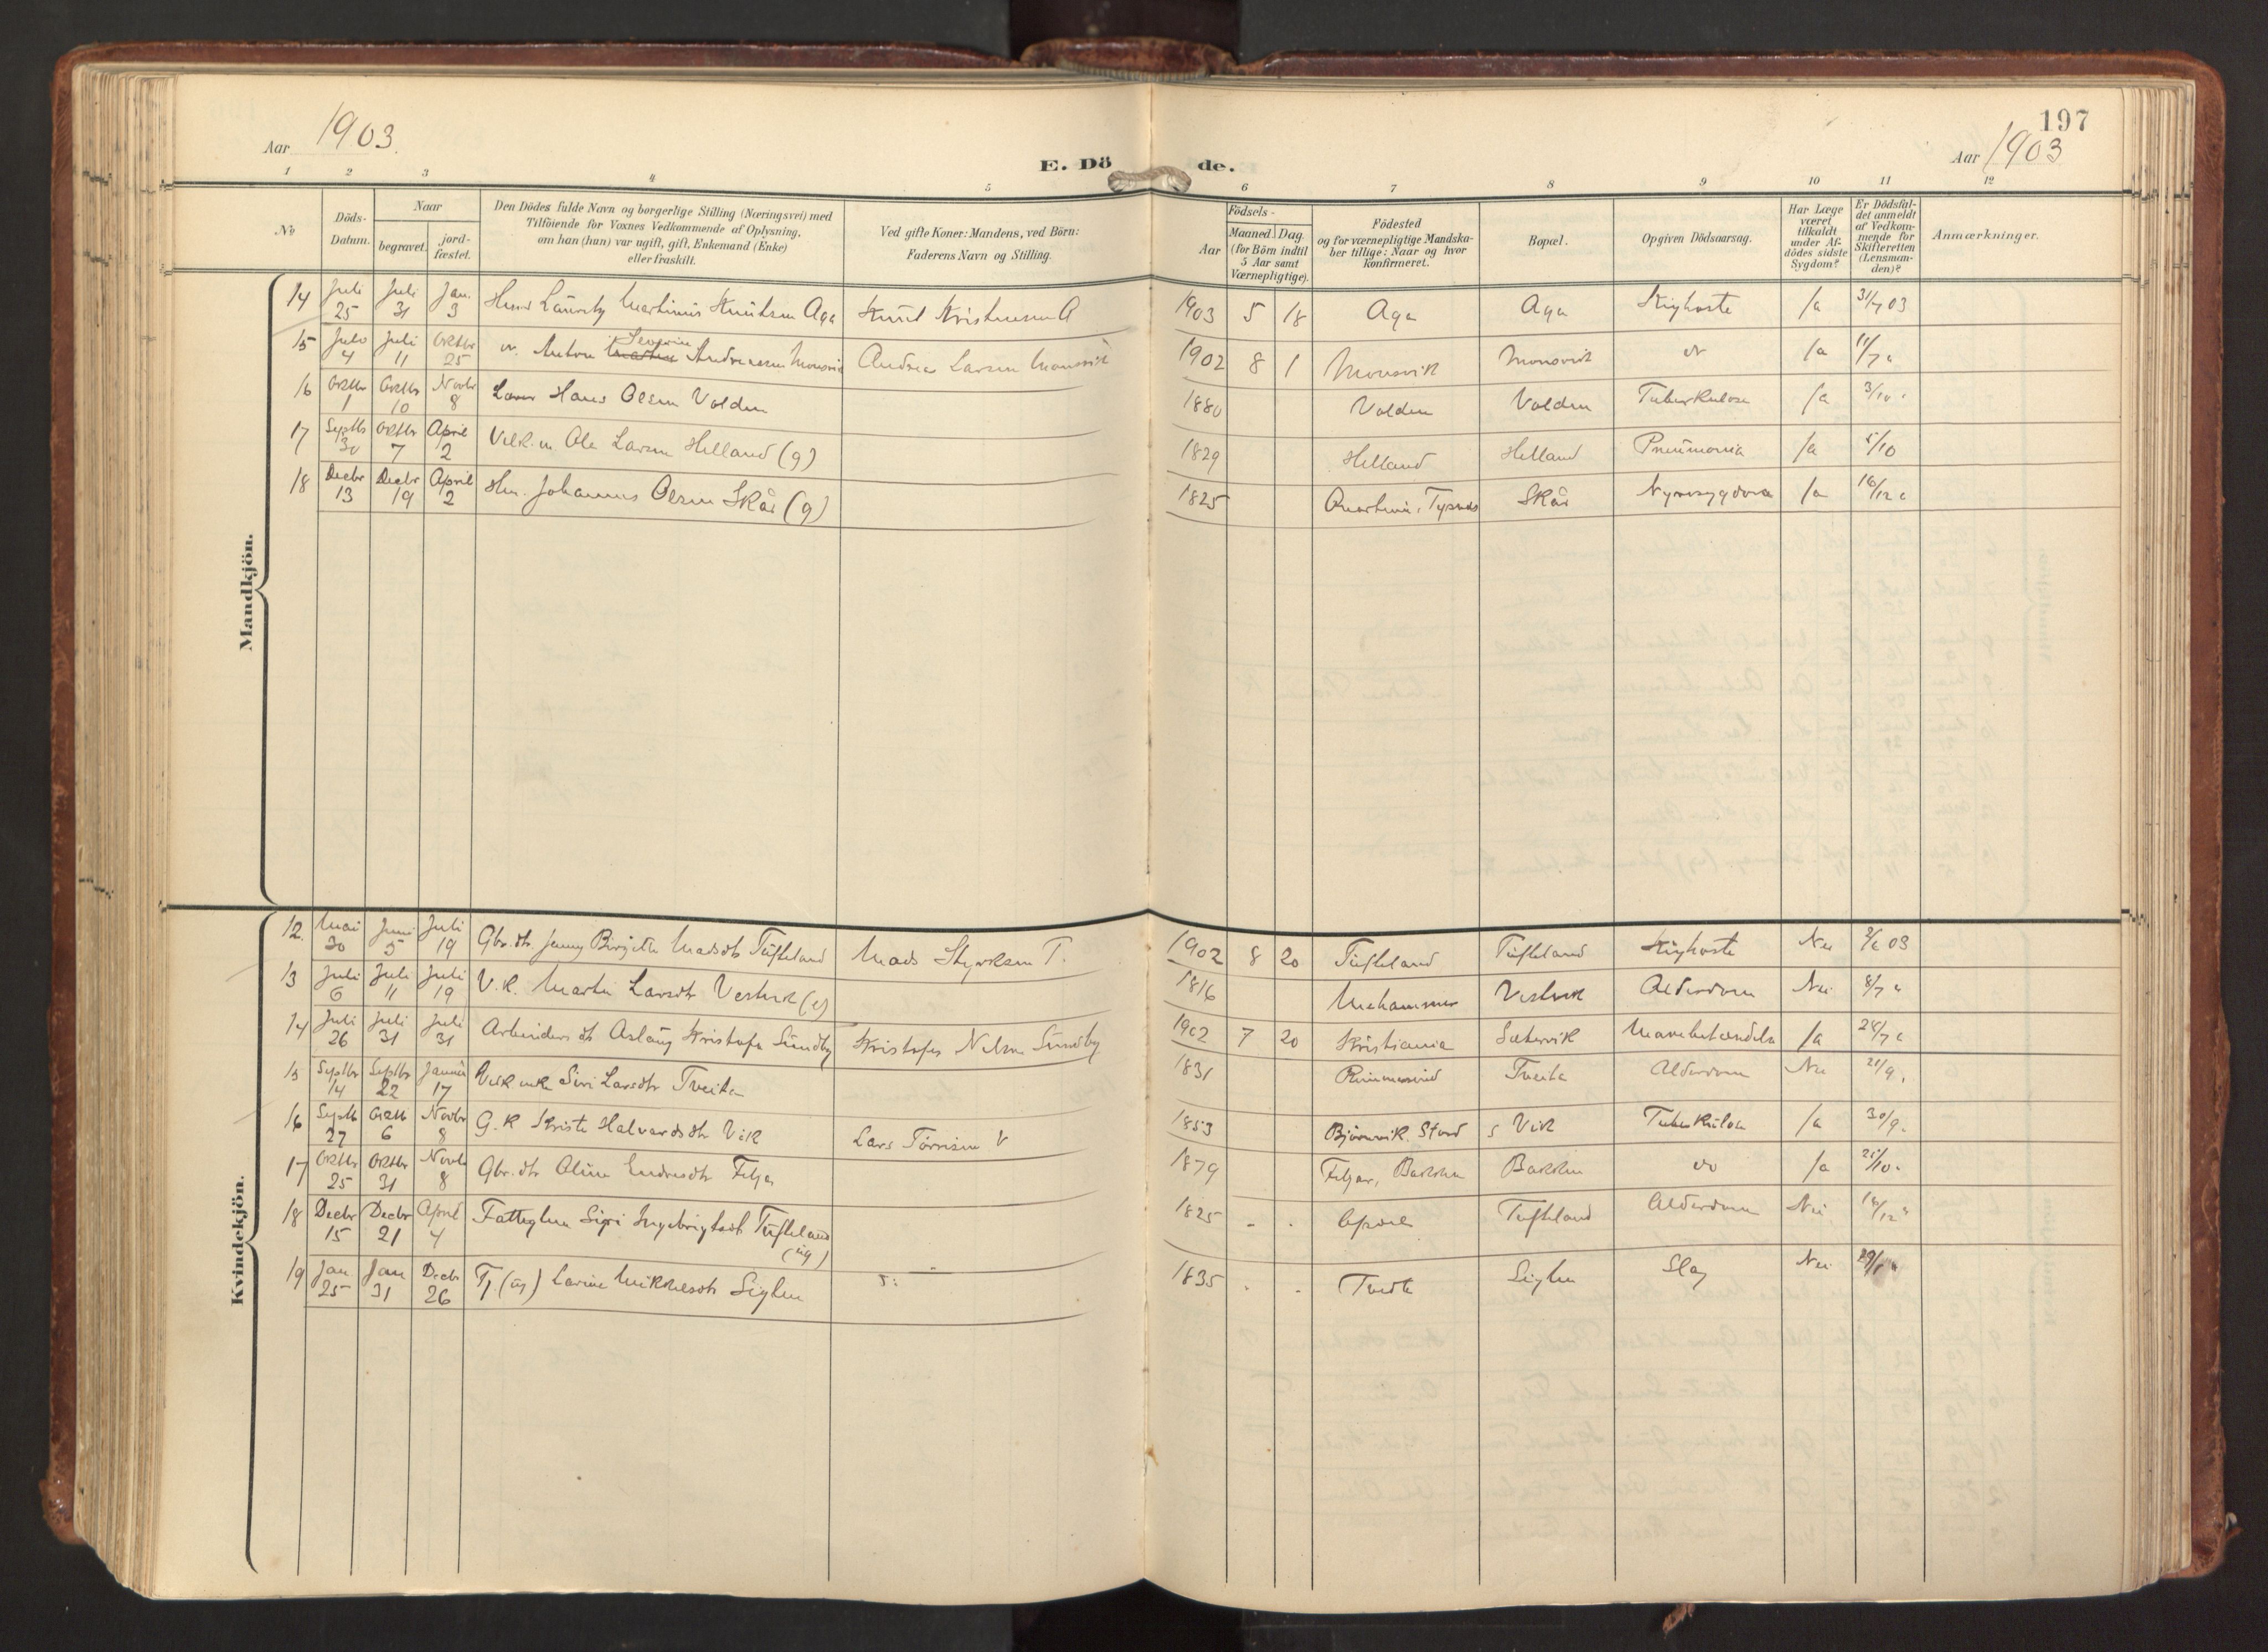 197
Aar 1903.
E. Döde.
Aar 1903
1 2 3 4 5 6 7 8 9 10 11 12
No
Döds-
Datum.
Naar
begravet.
jord-
fæstet.
Den Dödes fulde Navn og borgerlige Stilling (Næringsvei) med
Tilföiende for Voxnes Vedkommende af Oplysning,
om han (hun) var ugift, gift, Enkemand (Enke)
eller fraskilt.
Ved gifte Koner: Mandens, ved Börn:
Faderens Navn og Stilling.
Födsels-
Aar
Maaned.
Dag.
(for Börn indtil
5 Aar samt
Værnepligtige).
Födested
og for værnepligtige Mandska-
ber tillige: Naar og hvor
konfirmeret.
Bopæl.
Opgiven Dödsaarsag.
Har Læge
været
tilkaldt
under Af-
dödes sidste
Sygdom?
Er Dödsfal-
det anmeldt
af Vedkom-
mende for
Skifteretten
(Lensman-
den)?
Anmærkninger.
Mandkjön.
14 Juli 25 Juli 31 Jan. 3 Lauritz Martinius Knutsen Aga Knut Kristensen A 1903 5 18 Aga Aga Kighoste Ja 31/7 03
15 4 Juli 11 Oktbr 25 Anton Severin Andreassen Monsvik Andreas Larsen Monsvik 1902 8 1 Monsvik Monsvik do Ja 11/7 "
16 Oktbr 1 Oktbr 10 Novbr 8 Hans Olsen Volden 1880 Volden Volden Tuberkulose Ja 3/10 "
17 Septbr 30 Oktbr 7 April 2 Ole Larsen Helland (g) 1829 Helland Helland Pneumonia Ja 5/10
18 Decbr 13 Decbr 19 April 2 Johannes Olsen Skår (g) 1825 Skår Ja 16/12 "
Kvindekjön.
12. Mai 30 Juni 5 Juli 19 Gbr. dtr. Jenny Birgitte Madsdtr Tufteland Mads Styrksen T. 1902 8 20 Tufteland Tufteland Kighoste Nei 2/6 03
13 Juli 6 Juli 11 Juli 19 Larsdtr Vestvik (e) 1816 Mehammer Vestvik Alderdom Nei 8/7 "
14 Juli 26 Juli 31 Juli 31 Arbeiders dt Aslaug Kristofa Sundby Kristofer Nelsen Sundby 1902 7 20 Kristiania Sætervik Mavebetændelse Ja 28/7 "
15 Septbr 14 Septbr 22 Januar 17 Siri Larsdtr Tveita 1831 Tveita Alderdom Nei 21/9 "
16 Septb 27 Oktb 6 Novbr 8 G. K Kristi Halvardsdtr Vik Lars Tørrisen V 1853 Bjørnevik. Stord Vik Tuberkulose Ja 30/9 "
17 Oktbr 25 Oktbr 31 Novbr 8 Gbr. dtr Oline Endresdtr 1879 Bakken do Ja
18 Decbr 15 Decbr 21 April 4 Ingebrigtsdt Tufteland (ug) 1825 Tufteland Alderdom Nei
19 Jan 25 Jan 31 Decbr 26 Tj. (ug) Larine Mikkelsdtr 1835 Slag Nei 29/1 "